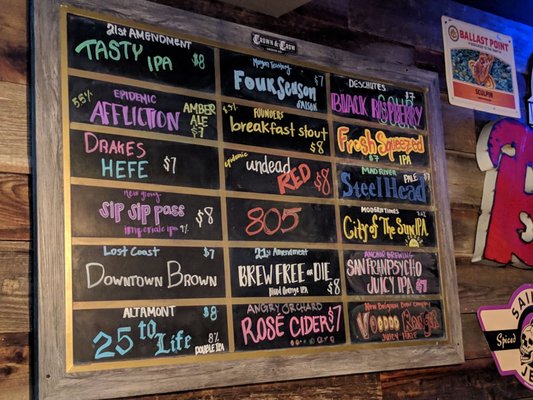 CROWN & CROW
21st AMENDMENT
TASTY IPA $8
5.8% EPIDEMIC
AFFLICTION AMBER ALE $7
DRAKES
HEFE $7
SIP SIP PASS $8
IMPERIALE IPA 9%
LOST COAST $7
DOWNTOWN BROWN
ALTAMONT $8
25 to LIFE 8%
DOUBLE IPA
$7
FOUR SEASON
SAISON
FOUNDERS
breakfast stout
$8
epidemic
undead RED $8
805
21st AMENDMENT
BREW FREE OR DIE
Blood Orange IPA $8
ANGRY ORCHARD
ROSÉ CIDER $7
DESCHUTES
Fresh Squeezed
$7 IPA
MAD RIVER PALE
Steel Head $7
MODERN TIMES $7
City Of The Sun IPA
SAN FRANPSYCHO
JUICY IPA $7
VooDoo Ranger
JUICY HAZE
BALLAST POINT
SCULPIN
SAI
Spiced